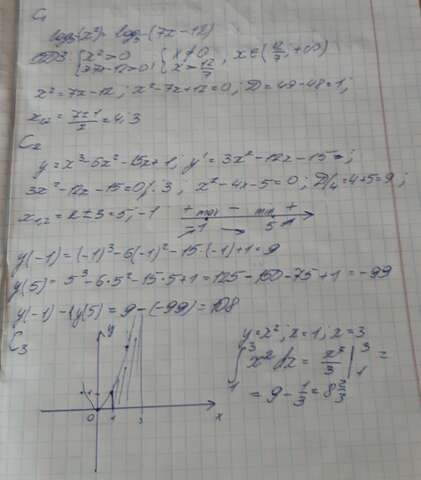 C₁
log₃(x²) = log₃(7x-12)
ОДЗ: { x²>0 ; 7x-12>0 { x≠0 ; x>12/7 , x∈(12/7; +∞)
x²=7x-12; x²-7x+12=0; D=49-48=1;
x₁,₂ = 7±1/2 = 4, 3
C₂
y=x³-6x²-15x+1, y'=3x²-12x-15=;
3x²-12x-15=0/:3, x²-4x-5=0; D/4=4+5=9;
x₁,₂=2±3=5,-1 + max - min +
-1 5
y(-1)=(-1)³-6(-1)²-15·(-1)+1=9
y(5)=5³-6·5²-15·5+1=125-150-75+1=-99
y(-1)-(y(5)=9-(-99)=108
C₃ y y=x²; x=1; x=3
∫₁³ x²dx = x³/3 |₁³ =
= 9-1/3=8 2/3
1
0 1 3 x